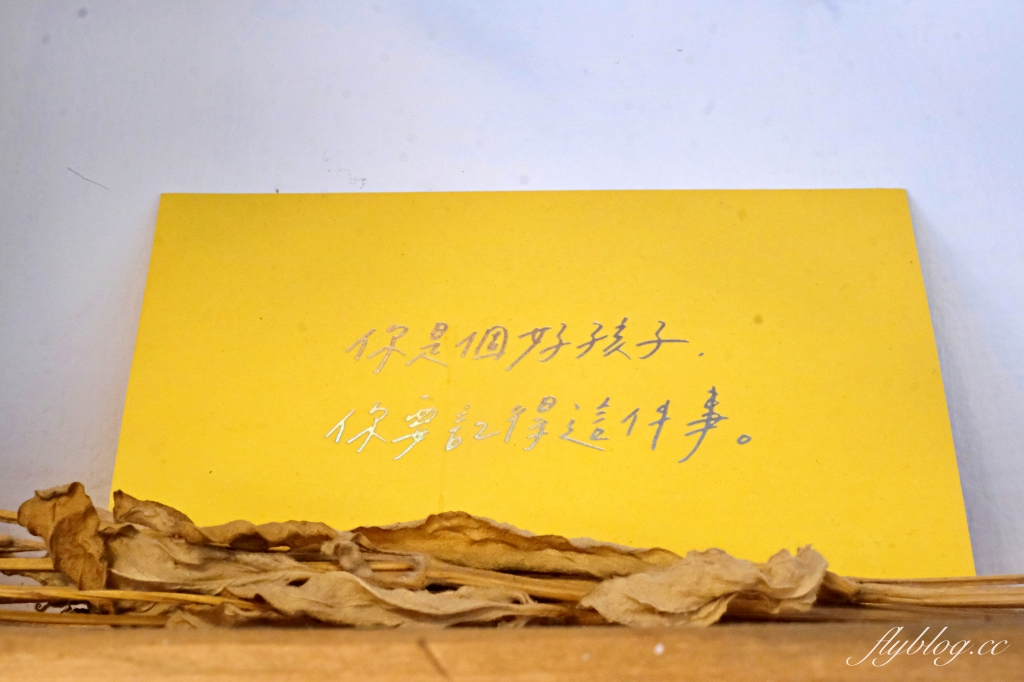 你是個好孩子,
你要記得這件事。
flyblog.cc